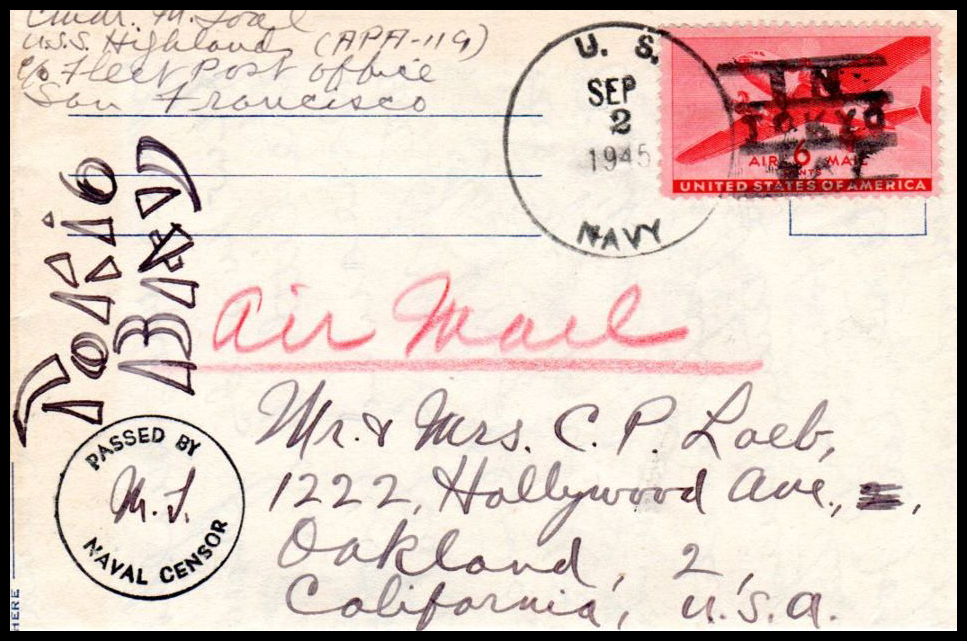 Cmdr. M. Loeb
U.S.S. Highland (APA-119)
c/o Fleet Post Office
San Francisco
U. S.
SEP
2
1945
NAVY
IN
TOKYO
BAY
AIR 6 MAIL
CENTS
UNITED STATES OF AMERICA
Tokio
Bay
Air Mail
PASSED BY
M. L.
NAVAL CENSOR
Mr. & Mrs. C. P. Loeb,
1222, Hollywood Ave.,
Oakland, 2,
California, U.S.A.
HERE